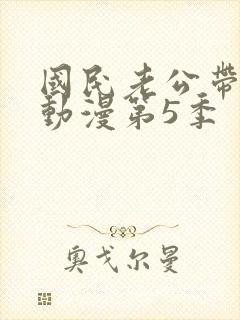 國民老公帶
動漫第5季
奧戈尔曼